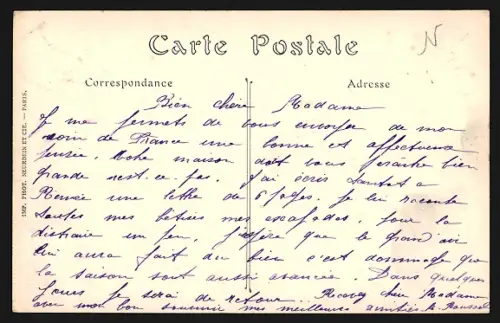 Carte Postale
Correspondance
Adresse
IMP. PHOT. NEURDEIN ET CIE. — PARIS.
N
Bien chère Madame
Je me permets de vous envoyer de mon
coin de France une bonne et affectueuse
pensée. Votre maison doit vous paraître bien
grande n'est-ce-pas. J'ai écris à
Renée une lettre de 6 pages. Je lui raconte
toutes mes bêtises mes escapades. pour la
distraire un peu, j'espère que le grand air
lui aura fait du bien c'est dommage que
la saison soit aussi avancée. Dans quelques
jours je serai de retour. Recevez chère Madame
avec mon bon souvenir mes meilleures amitiés